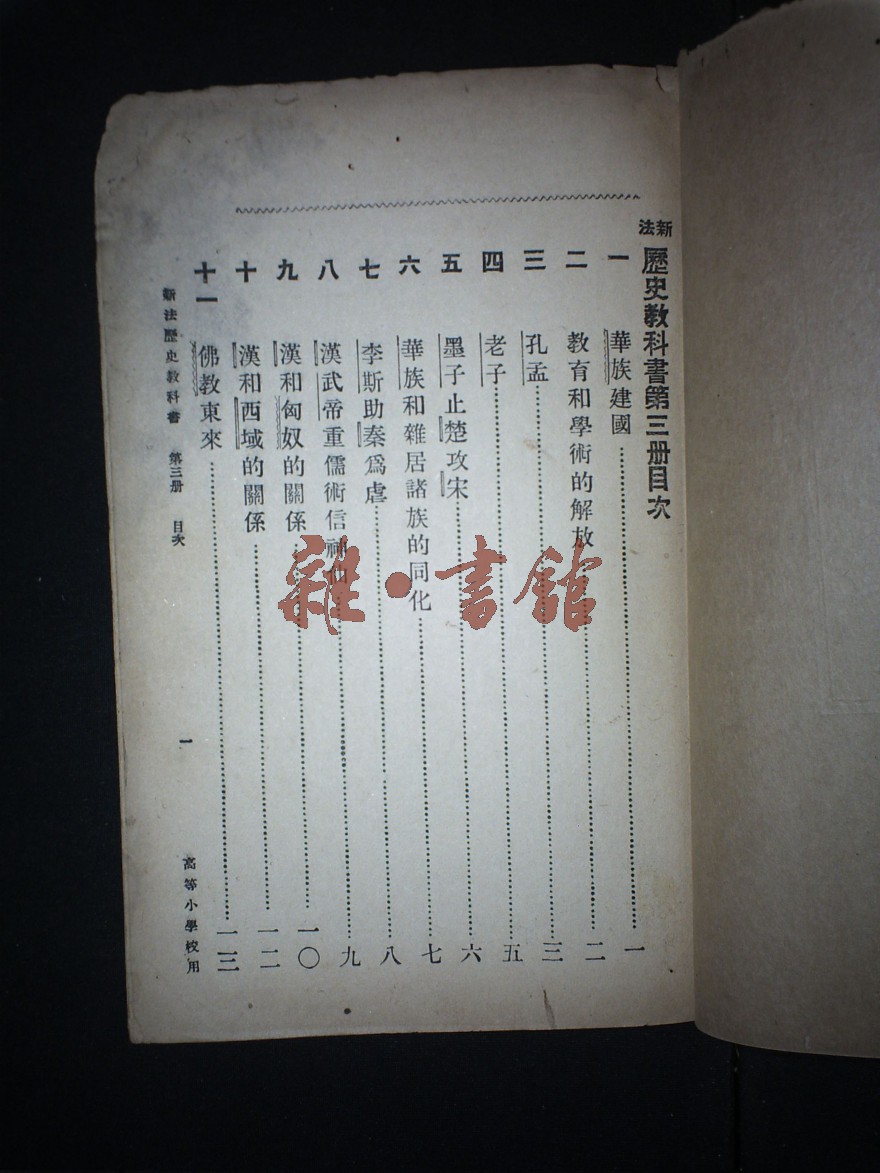 新法歷史教科書第三册目次
一 華族建國 一
二 教育和學術的解放 二
三 孔孟 三
四 老子 五
五 墨子止楚攻宋 六
六 華族和雜居諸族的同化 七
七 李斯助秦爲虐 八
八 漢武帝重儒術信神仙 九
九 漢和匈奴的關係 一〇
十 漢和西域的關係 一二
十一 佛教東來 一三
新法歷史教科書 第三册 目次 一 高等小學校用
雜·書館